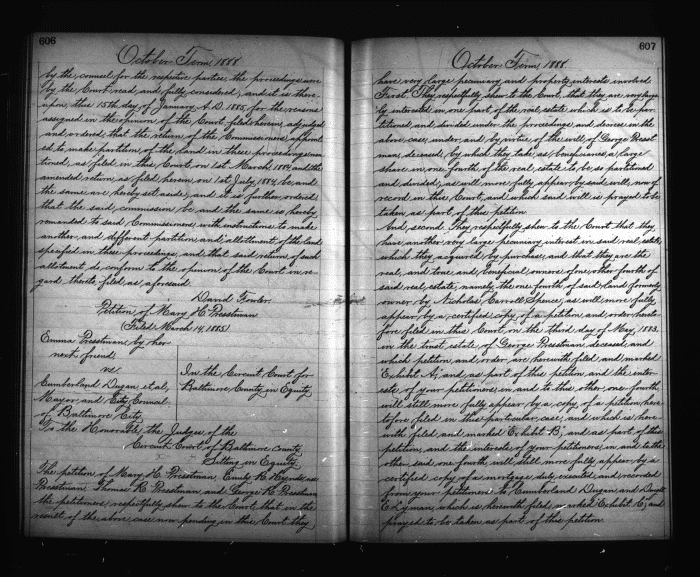 606
October Term, 1888
by the counsel for the respective parties, the proceedings were
by the Court read and fully considered, and it is there-
upon, this 15th day of January A.D. 1885, for the reasons
assigned in the opinion of the Court filed herein, adjudged
and ordered, that the return of the Commissioners, appoint
ed to make partition of the land in these proceedings men
tioned, as filed in this Court, on 1st March, 1884, and the
amended return, as filed herein, on 1st July, 1884, be and
the same are hereby set aside, and it is further ordered
that the said commission be and the same is hereby
remanded to said Commissioners with instructions to make
another, and different partition and allotment of the land
specified in these proceedings, and that said return of such
allotment do conform to the opinion of the Court in re-
gard thereto filed as aforesaid
David Fowler.
Petition of Mary H. Presstman
(Filed March 14, 1885)
Emma Presstman by her
next friend
vs.
Cumberland Dugan et al,
Mayor and City Council
of Baltimore City
In the Circuit Court for
Baltimore County, in Equity
To the Honorable, the Judges of the
Circuit Court of Baltimore County
Sitting in Equity
The petition of Mary H. Presstman, Emily H.
Presstman Thomas R. Presstman, and George R. Presstman
the petitioners, respectfully shew to the Court that in the
result of the above case now pending in this Court they
607
October Term, 1888.
have very large pecuniary and property interests involved
First. They respectfully shew to the Court, that they are very large
ly interested in one part of the real estate which is to be par-
titioned, and divided under the proceedings and decrees in the
above case, under, and by virtue of the will of George Presst
man, deceased, by which they take as beneficiaries a large
share in one fourth of the real estate to be so partitioned
and divided, as will more fully appear by said will, now of
record in this Court, and which said will is prayed to be
taken as part of this petition
And second they respectfully shew to the Court that they
have another very large pecuniary interest in said real estate,
which they acquired by purchase, and that they are the
real, and true, and beneficial owners of one other fourth of
said real estate, namely, the one fourth of said land formerly
owned by Nicholas Carroll Spence, as will more fully
appear by a certified copy of a petition, and order hereto-
fore filed in this Court, on the third day of May, 1883,
in the trust estate, of George Presstman, deceased, and
which petition, and order, are herewith filed, and marked
Exhibit A, and as part of this petition and the inter-
ests of your petitioners, in and to this other one fourth
will still more fully appear by a copy of a petition, here-
tofore filed in this particular case, and which is here
with filed and marked Exhibit B, and as part of this
petition, and the interests of your petitioners, in and to the
other said one fourth will still more fully appear by a
certified copy of a mortgage duly executed, and recorded
from your petitioners to Cumberland Dugan and
E. Lyman, which is herewith filed, marked Exhibit C, and
prayed to be taken as part of this petition